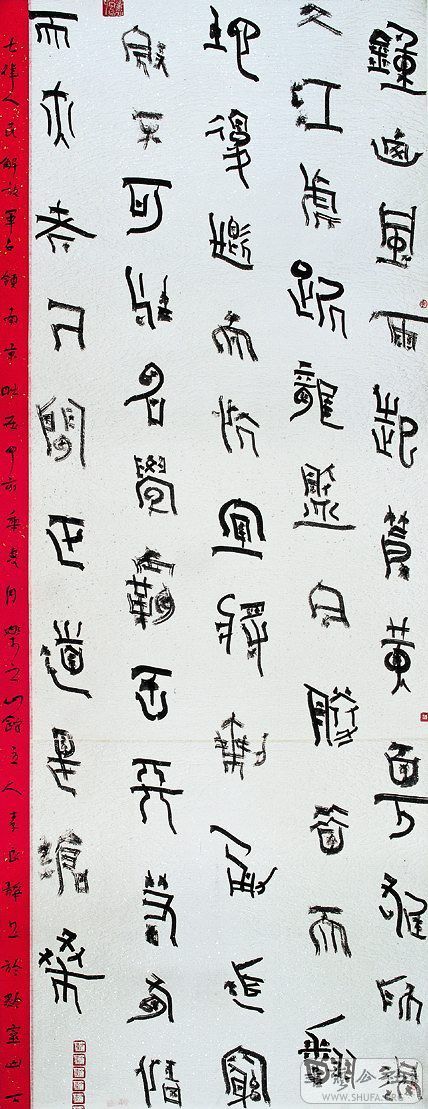 鍾山風雨起蒼黃百万雄師過
大江虎踞龍盤今勝昔天翻
地覆慨而慷宜將剩勇追窮
寇不可沽名學霸王天若有情
天亦老人間正道是滄桑
七律人民解放軍占領南京
WWW.SHUFA.ORG